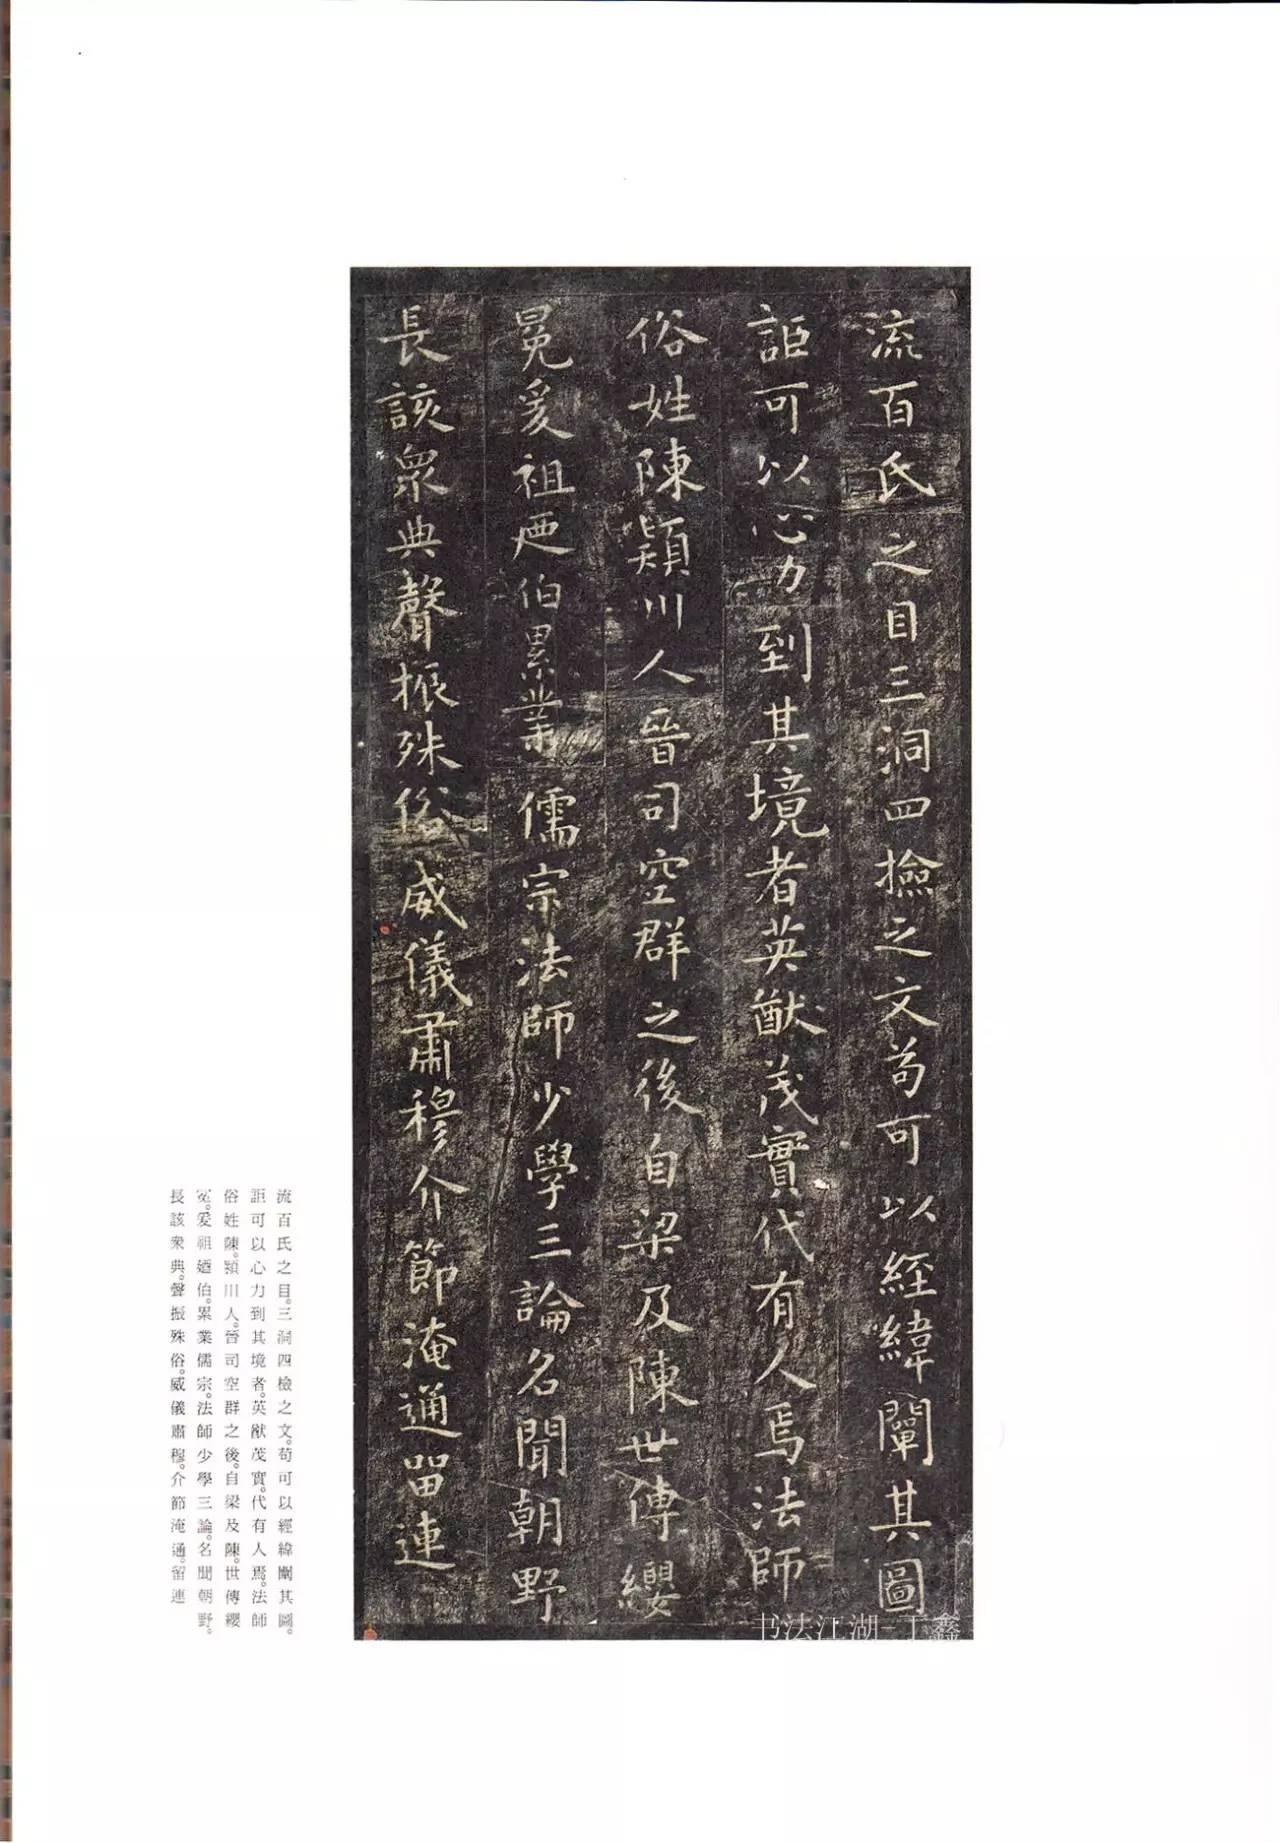 流百氏之目三洞四撿之文苟可以經緯闡其圖
詎可以心力到其境者英猷茂實代有人焉法師
俗姓陳潁川人晉司空群之後自梁及陳世傳纓
冕爰祖迺伯累業儒宗法師少學三論名聞朝野
長該眾典聲振殊俗威儀肅穆介節淹通留連
流百氏之目。三洞四檢之文。苟可以經緯闡其圖。
詎可以心力到其境者。英猷茂實。代有人焉。法師
俗姓陳。潁川人。晉司空群之後。自梁及陳。世傳纓
冕。爰祖迺伯。累業儒宗。法師少學三論。名聞朝野。
長該衆典。聲振殊俗。威儀肅穆。介節淹通。留連
书法江湖-丁鑫